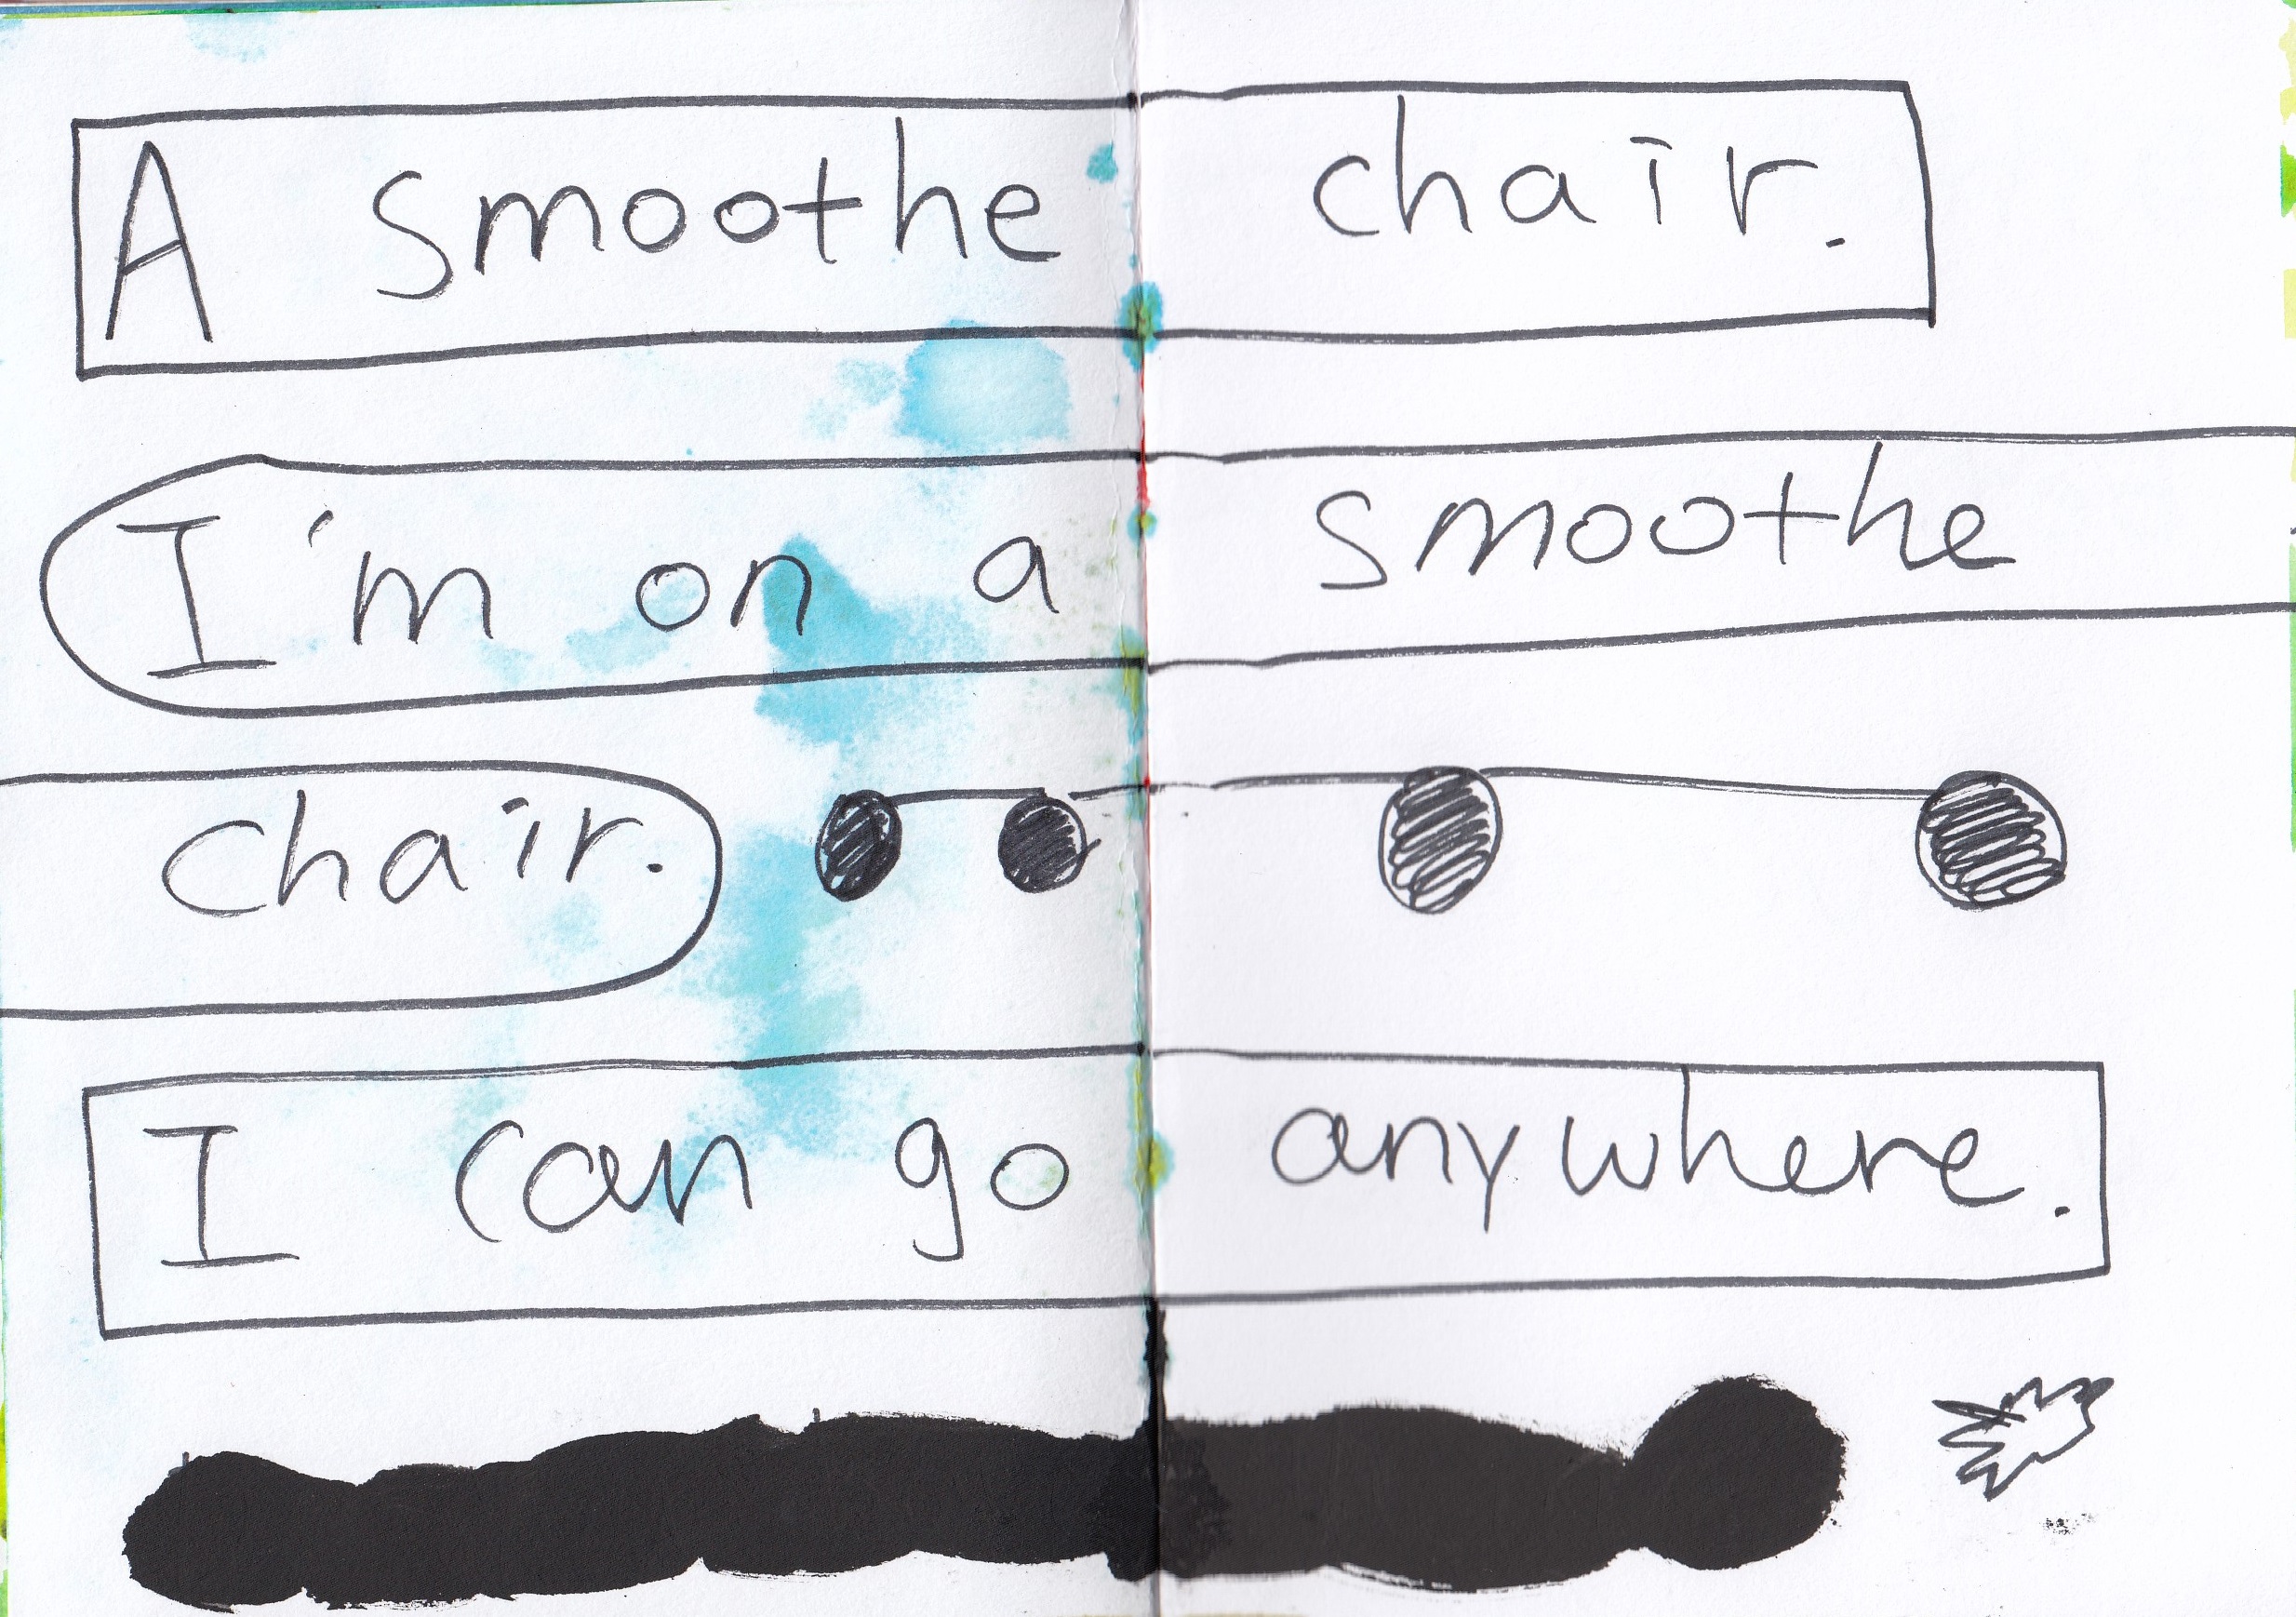 A smoothe chair.
I'm on a smoothe
chair.
I can go anywhere.